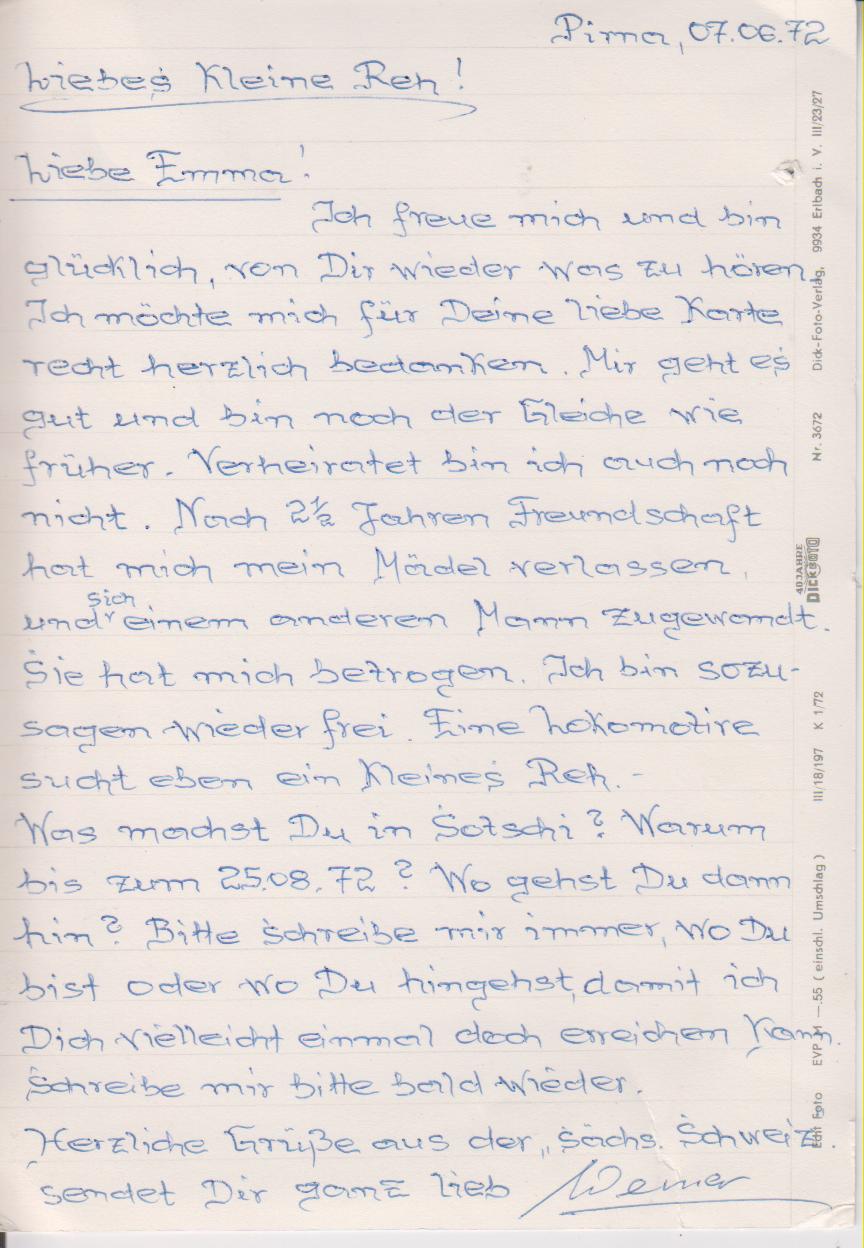 Pirna, 07.06.72
Liebes Kleine Reh!
Liebe Emma!
Ich freue mich und bin
glücklich, von Dir wieder was zu hören.
Ich möchte mich für Deine liebe Karte
recht herzlich bedanken. Mir geht es
gut und bin noch der Gleiche wie
früher. Verheiratet bin ich auch noch
nicht. Nach 2½ Jahren Freundschaft
hat mich mein Mädel verlassen,
und sich einem anderen Mann zugewandt.
Sie hat mich betrogen. Ich bin sozu-
sagen wieder frei. Eine Lokomotive
sucht eben ein Kleines Reh.-
Was machst Du in Sotschi? Warum
bis zum 25.08.72? Wo gehst Du dann
hin? Bitte schreibe mir immer, wo Du
bist oder wo Du hingehst, damit ich
Dich vielleicht einmal doch erreichen kann.
Schreibe mir bitte bald wieder.
Herzliche Grüße aus der „Sächs. Schweiz
sendet Dir ganz lieb Werner
Echt Foto EVP M —.55 ( einschl. Umschlag ) III/18/197 K 1/72
40 JAHRE
DICK FOTO
Nr. 3672 Dick-Foto-Verlag, 9934 Erlbach i. V. III/23/27